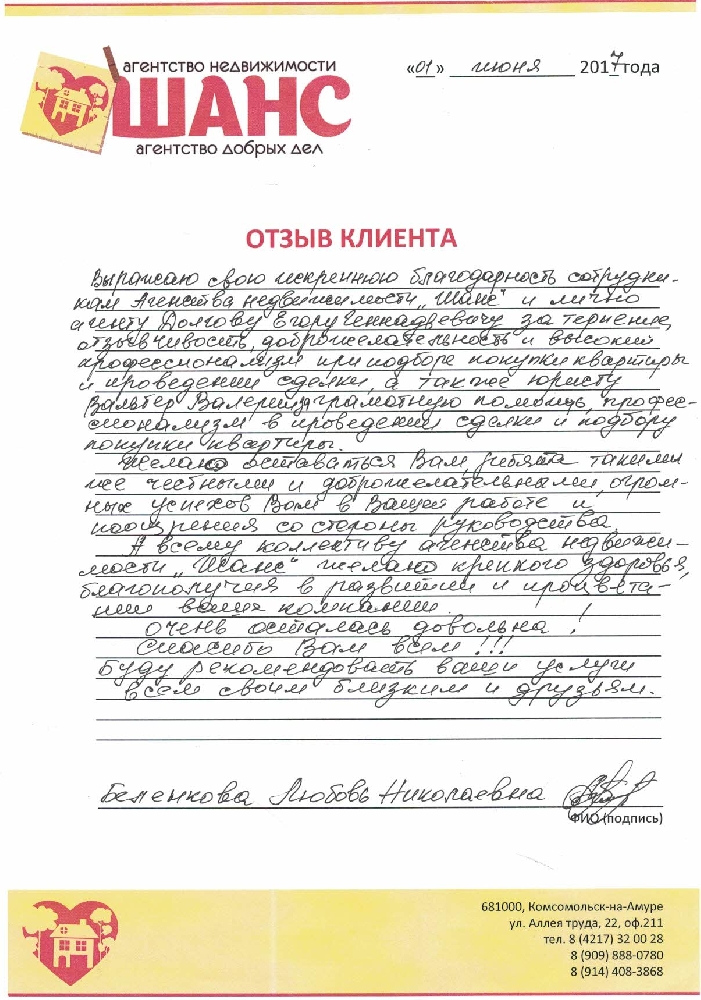 агентство недвижимости
ШАНС
агентство добрых дел
«01» июня 2017 года
ОТЗЫВ КЛИЕНТА
Выражаю свою искреннюю благодарность сотрудни-
кам Агенства недвижимости „Шанс" и лично
агенту Долгову Егору Геннадьевичу за терпение,
отзывчивость, доброжелательность и высокий
профессионализм при подборе покупки квартиры
и проведении сделки, а также юристу
Вальтер Валерии за грамотную помощь, профес-
сионализм в проведении сделки и подбору
покупки квартиры.
Желаю оставаться Вам, ребята такими
же честными и доброжелательными, огром-
ных успехов Вам в Вашей работе и
поощрения со стороны руководства.
А всему коллективу агенства недвижи-
мости „Шанс" желаю крепкого здоровья,
благополучия в развитии и процвета-
нии вашей компании.
Очень осталась довольна!
Спасибо Вам всем!!!
Буду рекомендовать ваши услуги
всем своим близким и друзьям.
Беленкова Любовь Николаевна
ФИО (подпись)
681000, Комсомольск-на-Амуре
ул. Аллея труда, 22, оф.211
тел. 8 (4217) 32 00 28
8 (909) 888-0780
8 (914) 408-3868